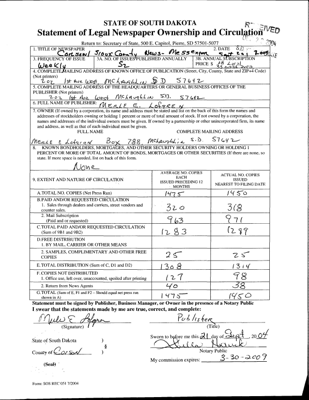 STATE OF SOUTH DAKOTA
Statement of Legal Newspaper Ownership and Circulation
Return to: Secretary of State, 500 E. Capitol, Pierre, SD 57501-5077
1. TITLE OF NEWSPAPER
2. DATE
Corson/ Sioux County News- Messenger
3. FREQUENCY OF ISSUE
3A. NO. OF ISSUES PUBLISHED ANNUALLY
3B. ANNUAL SUBSCRIPTION
Weekly
52
PRICE $
4. COMPLETE MAILING ADDRESS OF KNOWN OFFICE OF PUBLICATION (Street, City, County, State and ZIP+4 Code)
(Not printer)
McLaughlin SD 57642
5. COMPLETE MAILING ADDRESS OF THE HEADQUARTERS OR GENERAL BUSINESS OFFICES OF THE
PUBLISHER (Not printer)
McLaughlin SD. 57642
6. FULL NAME OF PUBLISHER:
Merle E. Lofgren
7. OWNER (If owned by a corporation, its name and address must be stated and
addresses of stockholders owning or holding 1 percent or more of total amount of stock. If not owned by a corporation, the
names and addresses of the individual owners must be given. If owned by a partnership or other unincorporated firm, its name
and address, as well as that of each individual must be given.
FULL NAME
COMPLETE MAILING ADDRESS
Merle E Lofgren Box 788 McLaughlin S.D. 57642
8. KNOWN BONDHOLDERS, MORTGAGEES, AND OTHER SECURITY HOLDERS OWNING OR HOLDING 1
PERCENT OR MORE OF TOTAL AMOUNT OF BONDS, MORTGAGES OR OTHER SECURITIES (If there are none, so
state. If more space is needed, list on back of this form.
None
9. EXTENT AND NATURE OF CIRCULATION
AVERAGE NO. COPIES EACH ISSUED PRECEDING 12 MONTHS
ACTUAL NO. COPIES ISSUED NEAREST TO FILING DATE
A. TOTAL NO. COPIES (Net Press Run)
1475
1450
B. PAID AND/OR REQUESTED CIRCULATION
1. Sales through dealers and carriers, street vendors and counter sales.
320
318
2. Mail Subscription (Paid and/or requested)
963
971
C. TOTAL PAID AND/OR REQUESTED CIRCULATION (Sum of 9B1 and 9B2)
1283
1289
D. FREE DISTRIBUTION
1. BY MAIL, CARRIER OR OTHER MEANS
2. SAMPLES, COMPLIMENTARY AND OTHER FREE COPIES
25
25
E. TOTAL DISTRIBUTION (Sum of C, D1 and D2)
1308
1314
F. COPIES NOT DISTRIBUTED
1. Office use, left over, unaccounted, spoiled after printing
127
98
2. Return from News Agents
40
38
G. TOTAL (Sum of E, F1 and F2 - Should equal net press run shown in A)
1475
1450
Statement must be signed by Publisher, Business Manager, or Owner in the presence of a Notary Public
I swear that the statements made by me are true, correct, and complete:
Merle E Lofgren
Publisher
(Signature)
(Title)
State of South Dakota )
Sworn to before me this 21 day of Sept 2004
County of Corson )
Notary Public
(Seal)
My commission expires: 3-30-2009